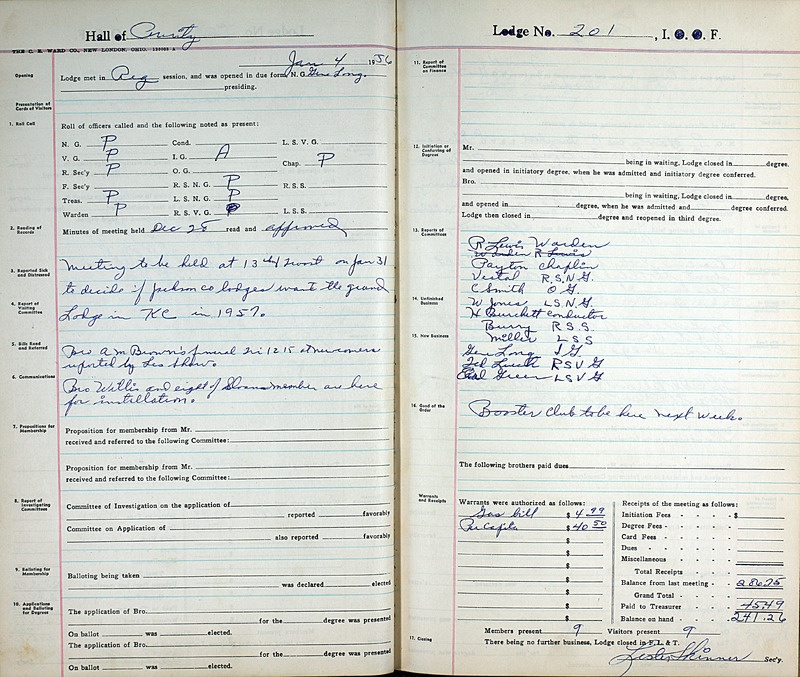 Hall of County
THE C. E. WARD CO., NEW LONDON, OHIO.
Jan 4 1956
Opening
Lodge met in Reg session, and was opened in due form N. G. Gene Long.
presiding.
Presentation of Cards of Visitors
1. Roll Call
Roll of officers called and the following noted as present:
N. G. P Cond. L. S. V. G.
V. G. P I. G. A Chap. P
R. Sec'y P O. G.
F. Sec'y R. S. N. G. P R. S. S.
Treas. P L. S. N. G. P
Warden P R. S. V. G. P L. S. S.
2. Reading of Records
Minutes of meeting held Dec 28 read and approved
3. Reported Sick and Distressed
Meeting to be held at 13th & on Jan 31
to decide if Jackson co lodges want the grand
4. Report of Visiting Committee
Lodge in KC in 1957.
5. Bills Read and Referred
Bro A M Brown's funeral Fri 1215 at newcomers
reported by Les Shaw.
6. Communications
Bro Willis and eight of Sloans member are here
for instillation.
7. Propositions for Membership
Proposition for membership from Mr.
received and referred to the following Committee:
Proposition for membership from Mr.
received and referred to the following Committee:
8. Report of Investigating Committees
Committee of Investigation on the application of
reported favorably
Committee on Application of
also reported favorably
9. Balloting for Membership
Balloting being taken
was declared elected
10. Applications and Balloting for Degrees
The application of Bro. for the degree was presented
On ballot was elected.
The application of Bro. for the degree was presented
On ballot was elected.
Lodge No. 201, I. O. O. F.
11. Report of Committee on Finance
12. Initiation or Conferring of Degrees
Mr.
being in waiting, Lodge closed in degree.
and opened in initiatory degree, when he was admitted and initiatory degree conferred.
Bro.
being in waiting, Lodge closed in degree,
and opened in degree, when he was admitted and degree conferred.
Lodge then closed in degree and reopened in third degree.
13. Reports of Committees
R Lewis Warden
Warden R Lewis
Payton chaplin
Vestal R.S.N.G.
C Smith O G.
14. Unfinished Business
W Jones L S.N.G.
H Burchett conductor
Burry R S S.
15. New Business
Miller L S S
Gene Long I G.
Ted Luell R S V G
Earl Green L S V G
16. Good of the Order
Booster Club to be here next week.
The following brothers paid dues
Warrants and Receipts
Warrants were authorized as follows:
Gas bill $ 4 99
Per Capita $ 40 50
$
$
$
$
$
$
$
Receipts of the meeting as follows:
Initiation Fees - - - $
Degree Fees - - -
Card Fees - - -
Dues - - - -
Miscellaneous - - -
Total Receipts - -
Balance from last meeting - 286.75
Grand Total - -
Paid to Treasurer - 45.49
Balance on hand - - 241.26
Members present 9 Visitors present 9
17. Closing
There being no further business, Lodge closed in F. L. & T.
Lester Skinner Sec'y.